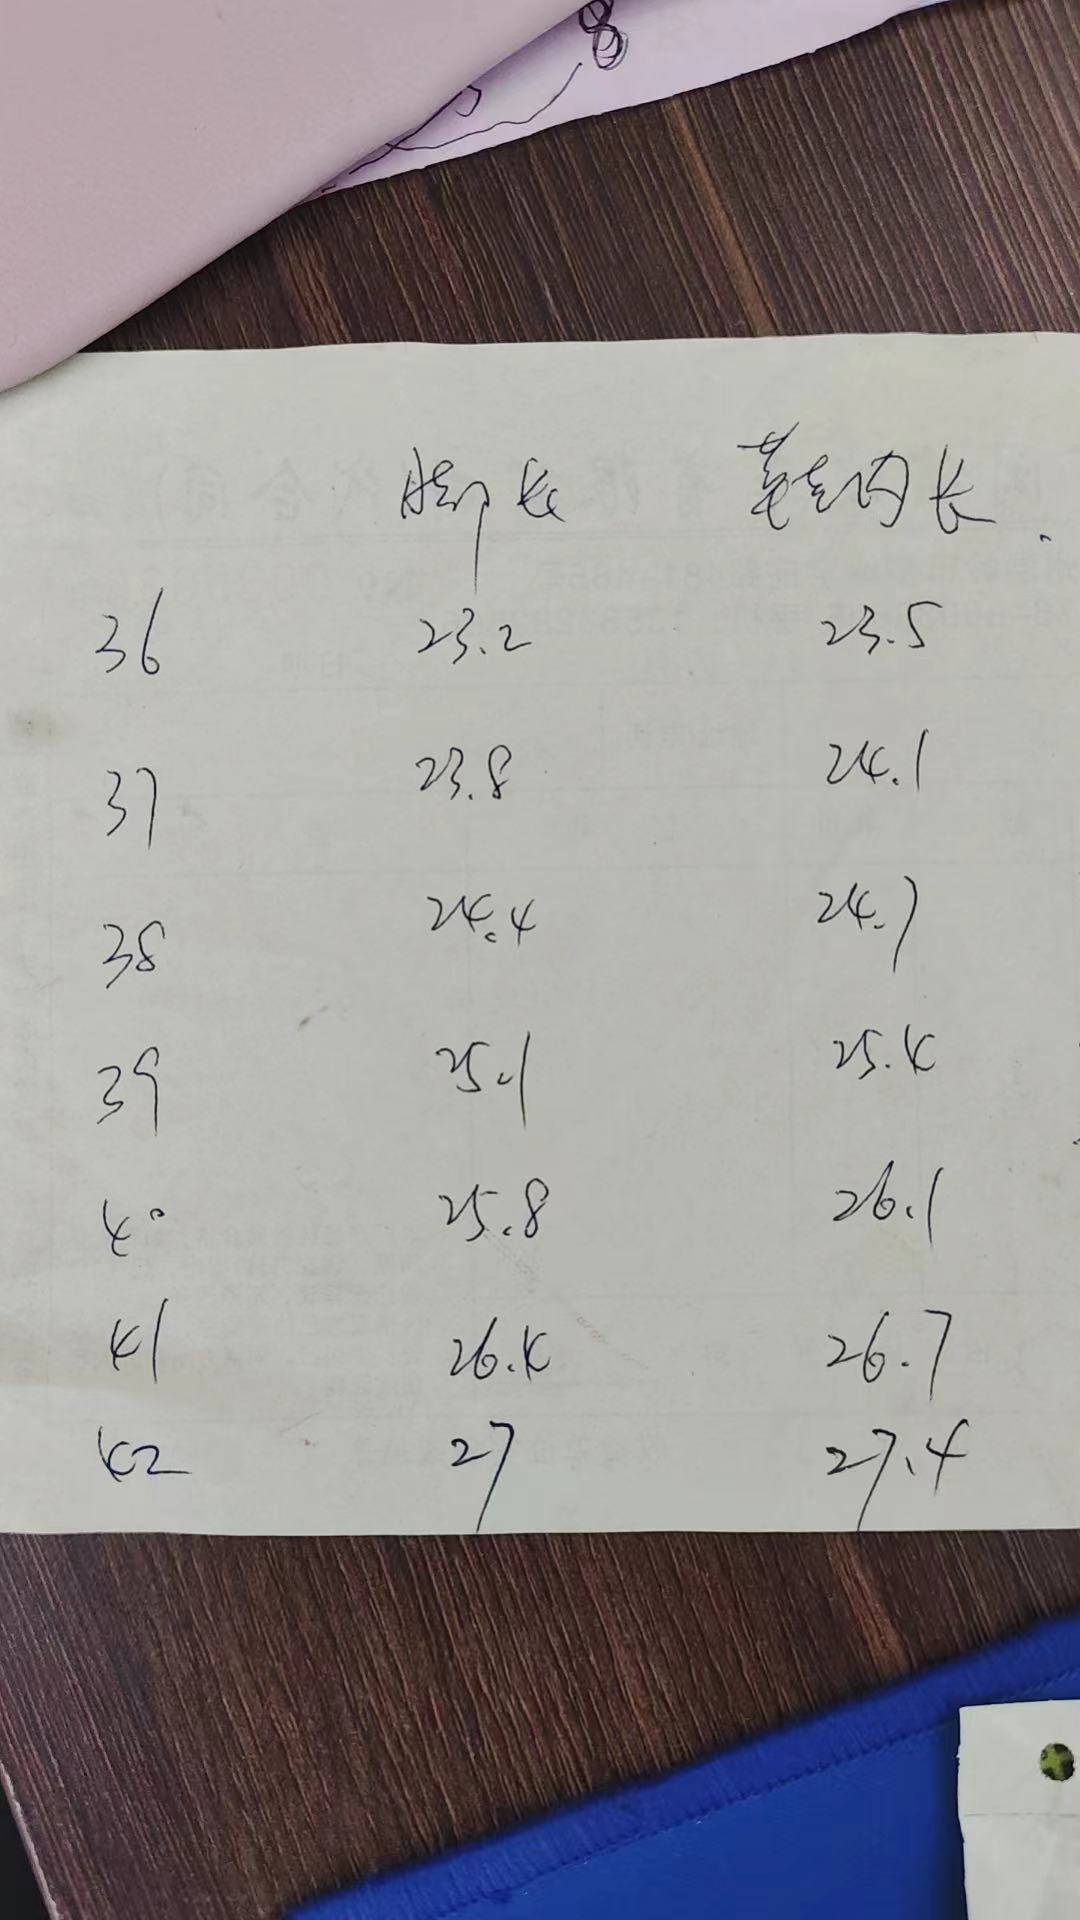 8
脚长 鞋内长
36 23.2 23.5
37 23.8 24.1
38 24.4 24.7
39 25.1 25.4
40 25.8 26.1
41 26.4 26.7
42 27 27.4